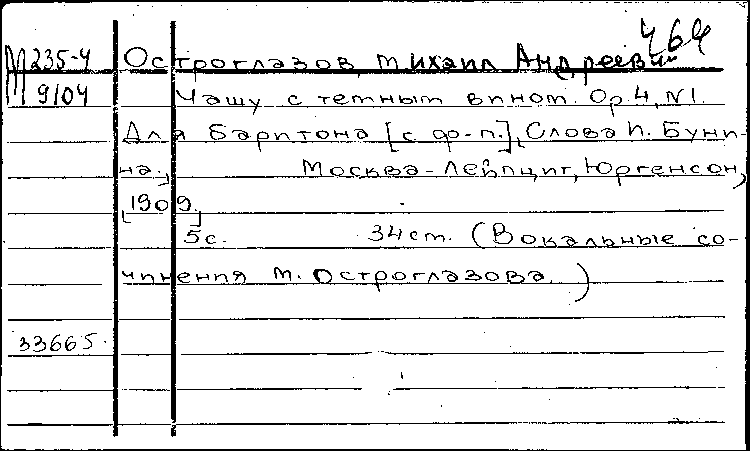 464
М 235-4 Остроглазов, Михаил Андреевич
9/04 Чашу с темным вином. Op. 4, N1.
Для баритона [с ф-п.], Слова И. Буни-
на., Москва-Лейпциг, Юргенсон,
[1909.]
5с. 34 cm. (Вокальные со-
чинения М. Остроглазова.)
33665.